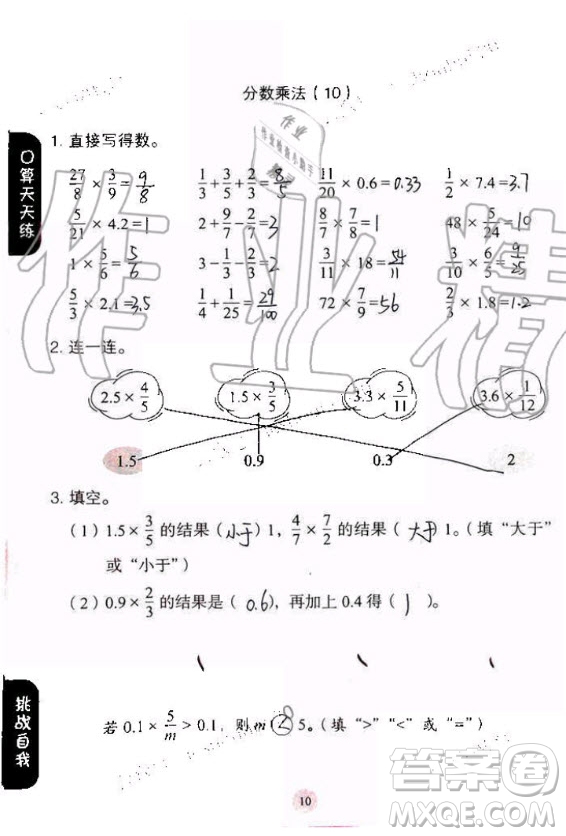 分数乘法（10）
口算天天练
1. 直接写得数。
27/8 × 3/9 = 9/8  1/3 + 3/5 + 2/3 = 8/5  11/20 × 0.6 = 0.33  1/2 × 7.4 = 3.7
5/21 × 4.2 = 1  2 + 9/7 - 2/7 = 3  8/7 × 7/8 = 1  48 × 5/24 = 10
1 × 5/6 = 5/6  3 - 1/3 - 2/3 = 2  3/11 × 18 = 54/11  3/10 × 6/5 = 9/25
5/3 × 2.1 = 3.5  1/4 + 1/25 = 29/100  72 × 7/9 = 56  2/3 × 1.8 = 1.2
2. 连一连。
2.5 × 4/5  1.5 × 3/5  3.3 × 5/11  3.6 × 1/12
1.5  0.9  0.3  2
3. 填空。
（1）1.5 × 3/5 的结果（小于）1，4/7 × 7/2 的结果（大于）1。（填“大于”
或“小于”）
（2）0.9 × 2/3 的结果是（0.6），再加上 0.4 得（1）。
挑战自我
若 0.1 × 5/m > 0.1，则 m 5。（填“>”“<”或“=”）
10
作业精
作业
答案圈
MXQE.COM